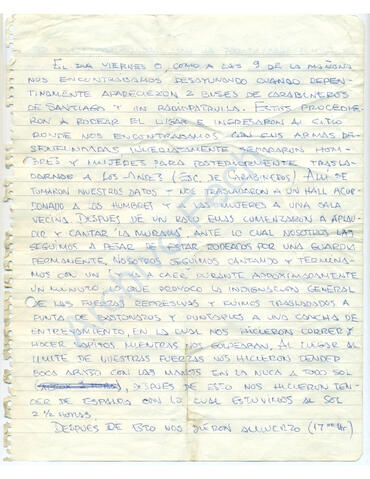 EL DIA VIERNES 8, COMO A LAS 9 DE LA MAÑANA
NOS ENCONTRABAMOS DESAYUNANDO CUANDO REPEN-
TINAMENTE APARECIERON 2 BUSES DE CARABINEROS
DE SANTIAGO Y UN RADIOPATRULLA. ESTOS PROCEDIE-
RON A RODEAR EL LUGAR E INGRESARON AL SITIO
DONDE NOS ENCONTRABAMOS CON SUS ARMAS DE-
SENFUNDADAS INMEDIATAMENTE SEPARARON HOM-
BRES Y MUJERES PARA POSTERIORMENTE TRASLA-
DARNOS A LOS ANDES (ESC. DE CARABINEROS) ALLI SE
TOMARON NUESTROS DATOS Y NOS TRASLADARON A UN HALL
A LOS HOMBRES Y A LAS MUJERES A UNA SALA
VECINA. DESPUES DE UN RATO ELLAS COMENZARON A APLAU-
DIR Y CANTAR "LA MURALLA", ANTE LO CUAL NOSOTROS LAS
SEGUIMOS A PESAR DE ESTAR RODEADOS POR UNA GUARDIA
PERMANENTE, NOSOTROS SEGUIMOS CANTANDO Y TERMINA-
MOS CON UN Y A CAER, DURANTE APROXIMADAMENTE
UN MINUTO LO QUE PROVOCO LA INDIGNACION GENERAL
DE LAS FUERZAS REPRESIVAS Y FUIMOS TRASLADADOS A
PUNTA DE BASTONAZOS Y PUNTAPIES A UNA CANCHA DE
ENTRENAMIENTO, EN LA CUAL NOS HICIERON CORRER Y
HACER SAPITOS MIENTRAS NOS GOLPEABAN. AL LLEGAR AL
LIMITE DE NUESTRAS FUERZAS NOS HICIERON TENDER
BOCA ABAJO CON LAS MANOS EN LA NUCA A TODO SOL
, DESPUES DE ESTO NOS HICIERON TEN-
DER DE ESPALDA CON LO CUAL ESTUVIMOS AL SOL
2 1/2 HORAS.
DESPUES DE ESTO NOS DIERON ALMUERZO (17